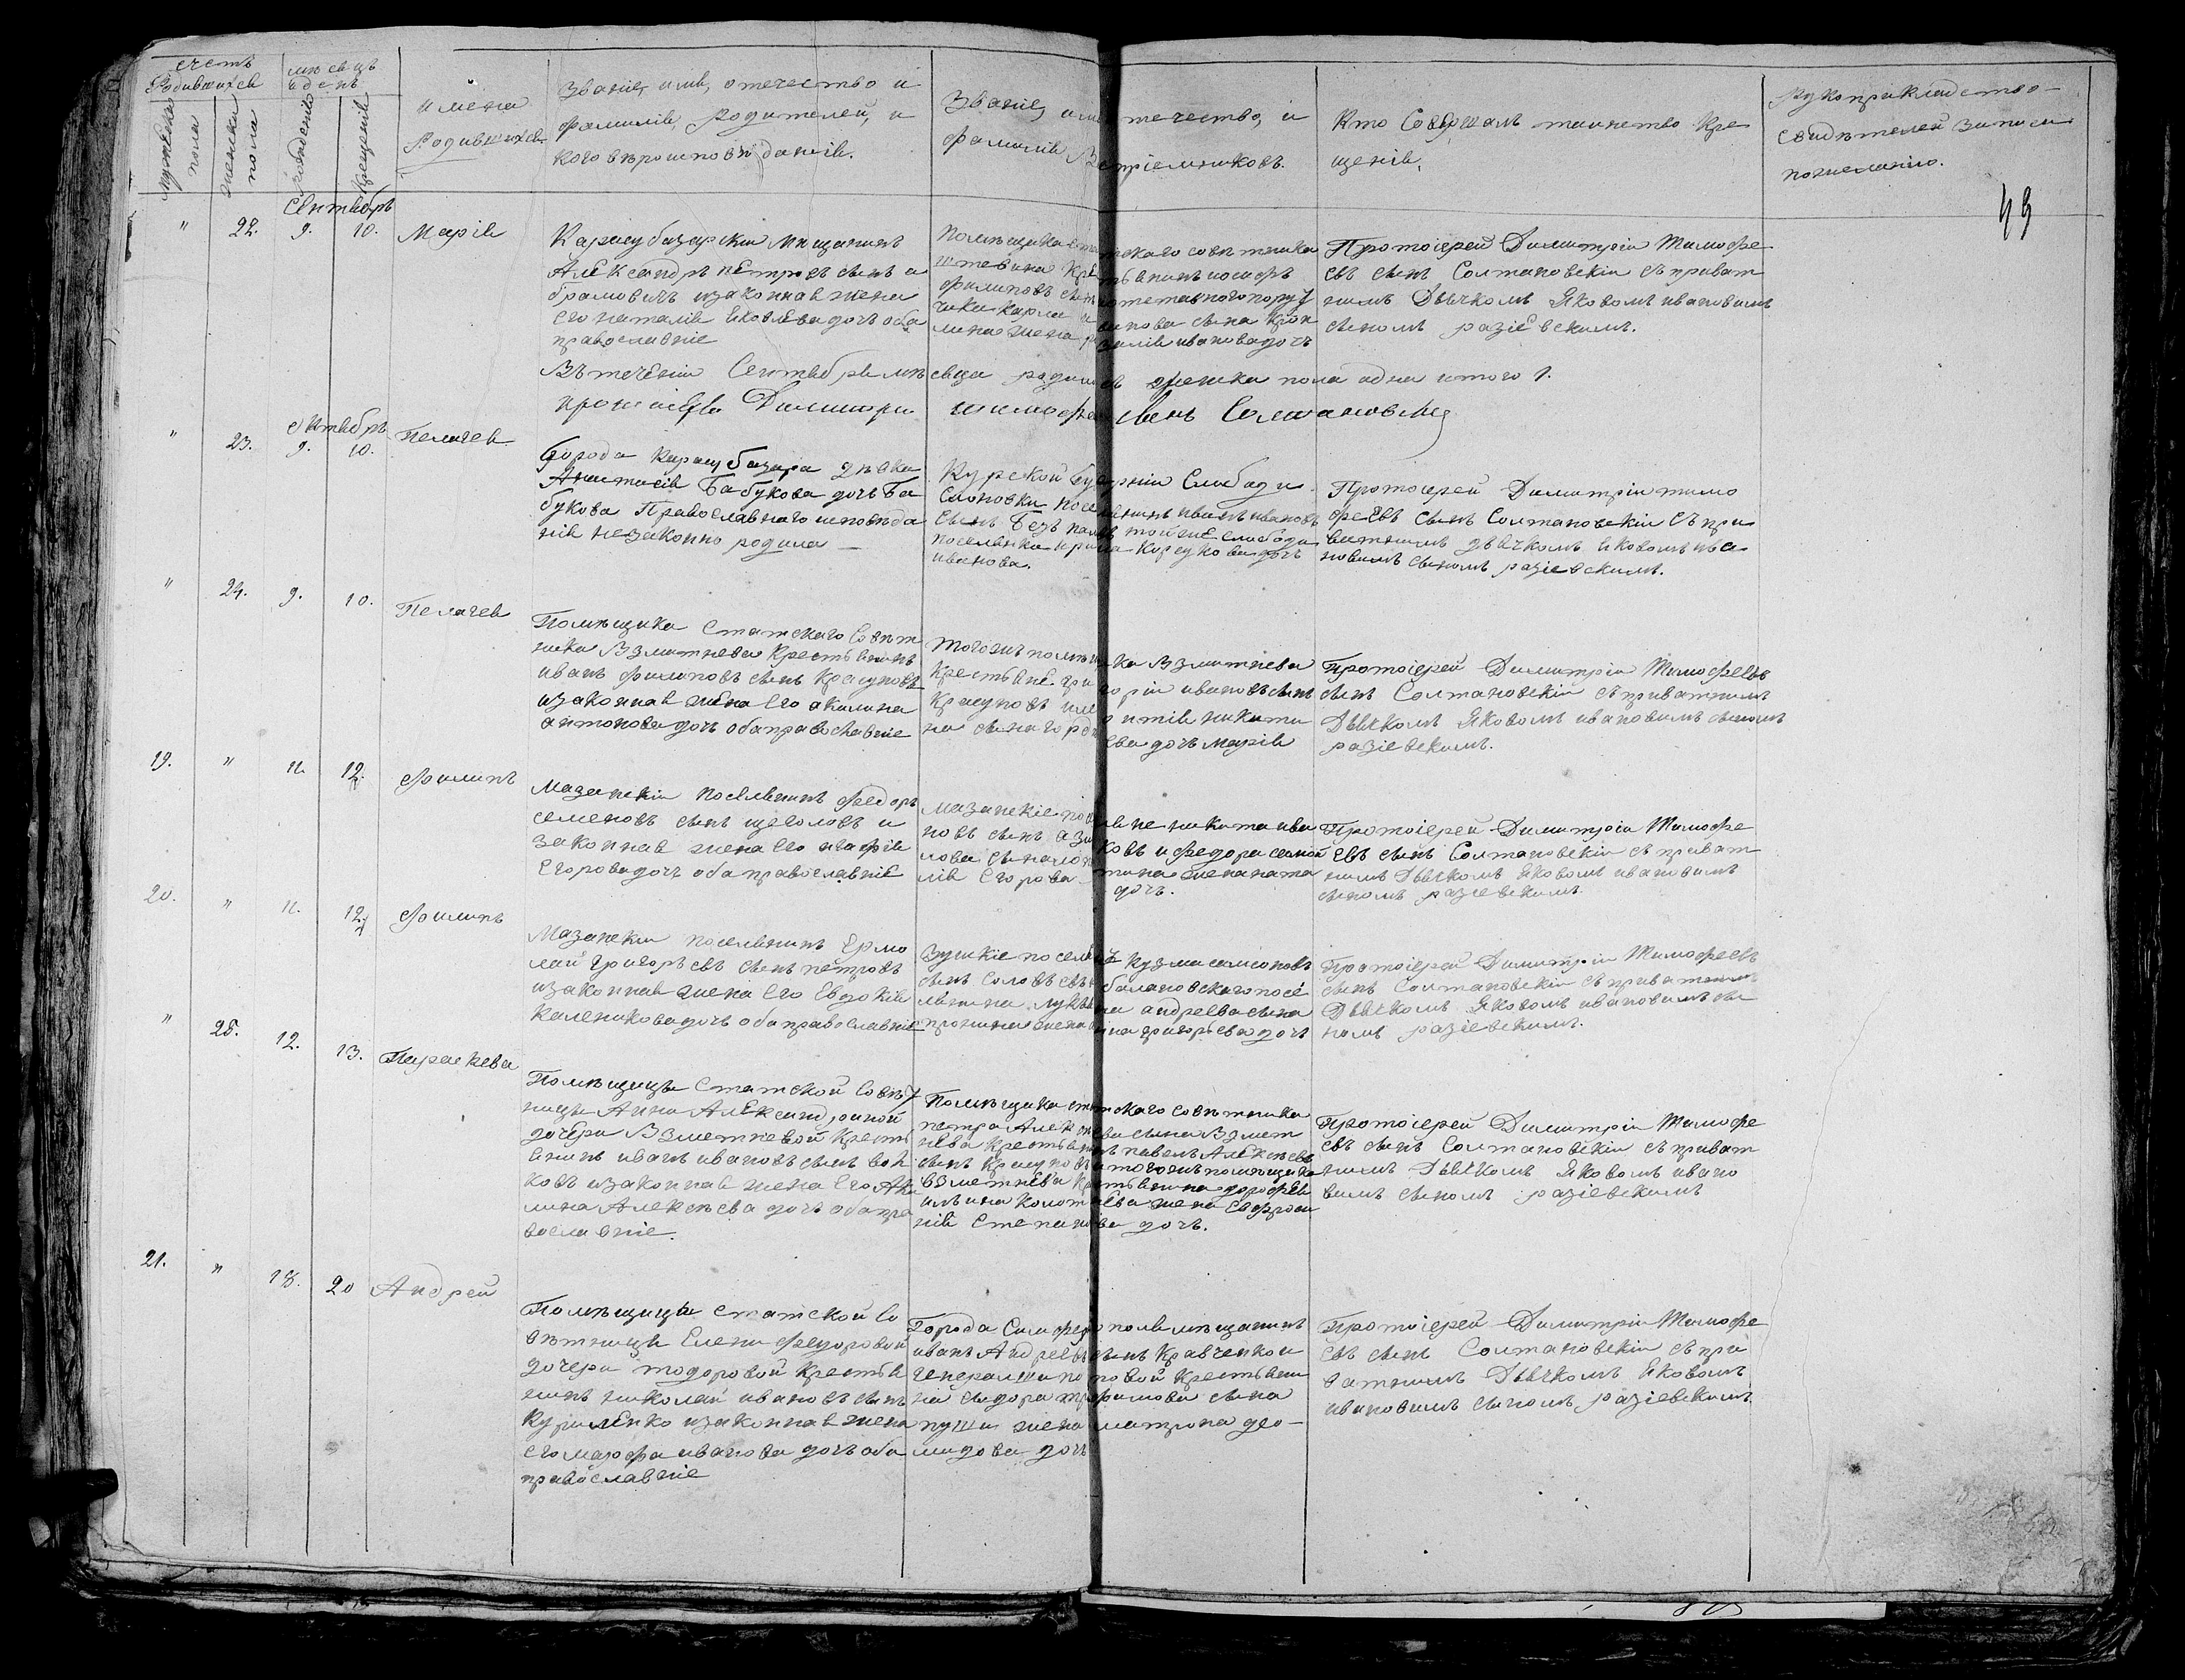 счетъ
Родившихся
мѣсяцъ
и день
мужеска
пола
женска
пола
рожденія
крещенія
имена
Родившихся
Званіе, имя, отечество и
фамилія, Родителей, и
кого вѣроисповѣданія.
Званіе, имя отечество, и
фамилія Воспріемниковъ.
Кто Совершалъ таинство Кре
щенія.
Рукоприкладство
свидѣтелей записи
по желанію.
Сентябрь
49
" 22. 9. 10. Марія
Карасубазарскій мѣщанинъ
Александръ Петровъ сынъ а
брамовичъ и законная жена
его наталія Яковлева дочь оба
православніе
Помѣщика статскаго совѣтника
крестьянинъ иосифъ
филиповъ сынъ отставного пору
чика карла иванова сына крон
лина жена ивановa дочь
Протоіерей Димитрій Тимофе
евъ сынъ Солтановскій съ приват
нимъ Дьячкомъ Яковомъ ивановимъ
сыномъ разіевскимъ.
Въ теченіи Сентября мѣсяца родилась женска пола одна итого 1.
протоіерей Димитрій Тимофеевъ сынъ Солтановскій
Октябрь
" 23. 9. 10. Пелагея
Города Карасубазара дѣвка
Анастасія Бабукова дочь Ба
букова Православнаго исповѣда
нія незаконно родила
Курской губерніи Слободи
поселянинъ иванъ ивановъ
сынъ той же слободи
поселянка ирина дочь
иванова.
Протоіерей Димитрій тимо
феевъ сынъ Солтановскій съ при
ватнимъ дьячкомъ Яковомъ ива
новимъ сыномъ разіевскимъ.
" 24. 9. 10. Пелагея
Помѣщика Статскаго Совѣт
ника Взметнева Крестьянинъ
иванъ филиповъ сынъ Красуновъ
и законная жена его акилина
антонова дочь оба православніе
тогоже помѣщика Взметнева
Крестьяне григорій ивановъ сынъ
Красуновъ и никити
на сына
ева дочь марія
Протоіерей Димитрій Тимофеевъ
сынъ Солтановскій съ приватнимъ
Дьячкомъ Яковомъ ивановимъ сыномъ
разіевскимъ.
19. " 11. 12. Филипъ
Мазанскій поселянинъ федоръ
семеновъ сынъ щеголовъ и
законная жена его агафія
Егорова дочь оба православніе
мазанскіе поселяне никита ива
новъ сынъ и федора самой
лова сына жена ната
лія Егорова дочь.
Протоіерей Димитрій Тимофе
евъ сынъ Солтановскій съ приват
нимъ Дьячкомъ Яковомъ ивановимъ
сыномъ разіевскимъ.
20. " 11. 12. Филипъ
Мазанскій поселянинъ Ермо
лай Григорьевъ сынъ петровъ
и законная жена его Евдокія
Каленикова дочь оба православніе
Зуйскіе поселяне Кузма самсоновъ
сынъ Соловьевъ балановскаго посе
лянина лукьяна андреева сына
пронина жена григорьева дочь
Протоіерей Димитрій Тимофеевъ
сынъ Солтановскій съ приватнимъ
Дьячкомъ Яковомъ ивановимъ сы
номъ разіевскимъ.
" 25. 12. 13. Параскева
Помѣщици Статской Совѣт
ници Анни Александриной
дочери Взметневой Кресть
янинъ иванъ ивановъ сынъ вол
ковъ и законная жена его Аки
лина Алексѣева дочь оба пра
вославніе.
Помѣщика статскаго совѣтника
петра Алексѣева сына Взмет
нева крестьянинъ павелъ Алексѣевъ
сынъ Красуновъ и тогожъ помѣщика
взметнева крестьянина дорофея
жена Ефроси
нія Степанова дочь.
Протоіерей Димитрій Тимофе
евъ сынъ Солтановскій съ приват
нимъ Дьячкомъ Яковомъ ивано
вимъ сыномъ разіевскимъ
21. " 18. 20 Андрей
Помѣщици статской Со
вѣтници Елени федоровой
дочери тодоровой крестья
нинъ николай ивановъ сынъ
Куриленко и законная жена
его марфа иванова дочь оба
православніе
Города Симферополя мѣщанинъ
иванъ Андреевъ сынъ Кравченко и
генералши поповой крестьяни
на сидора трофимова сына
жена матрона део-
мидова дочь
Протоіерей Димитрій Тимофе
евъ сынъ Солтановскій съ при
ватнимъ Дьячкомъ Яковомъ
ивановимъ сыномъ разіевскимъ.